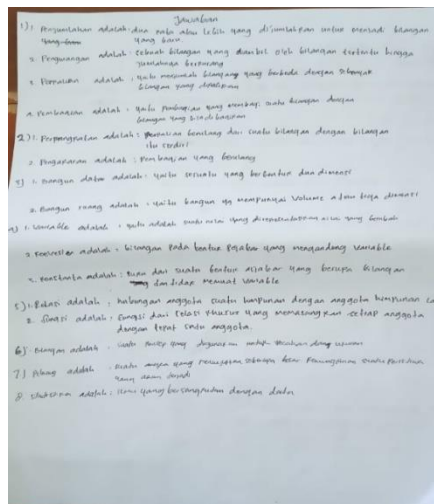 Jawaban
1) 1. Penjumlahan adalah : dua atau lebih yang dijumlahkan untuk menjadi bilangan
yang baru
2. Pengurangan adalah : sebuah bilangan yang diambil oleh bilangan tertentu hingga
jumlahnya berkurang
3. Perkalian adalah : yaitu bilangan yang berbeda dengan sebanyak
bilangan yang
4. Pembagian adalah : yaitu yang membagi suatu bilangan dengan
bilangan yang
2) 1. Perpangkatan adalah : perkalian berulang dari suatu bilangan dengan bilangan
itu sendiri
2. Pengakaran adalah : Pembagian yang berulang
3) 1. Bangun datar adalah : yaitu sesuatu yang berbentuk dua dimensi
2. Bangun ruang adalah : yaitu bangun yg mempunyai volume atau tiga dimensi
4) 1. Variable adalah : yaitu adalah suatu nilai yang nilai yang berubah
2. Koefisien adalah : bilangan pada bentuk aljabar yang mengandung variable
3. Konstanta adalah : suku dari suatu bentuk aljabar yang berupa bilangan
dan tidak memuat variable
5) 1. Relasi adalah : hubungan anggota suatu himpunan dengan anggota himpunan
2. fungsi adalah : fungsi dari relasi khusus yang memasangkan setiap anggota
dengan tepat satu anggota.
6) adalah : suatu yang digunakan untuk
7) Peluang adalah : suatu angka yang seberapa besar kemungkinan suatu peristiwa
yang akan terjadi
8. Statistika adalah : ilmu yang bersangkutan dengan data